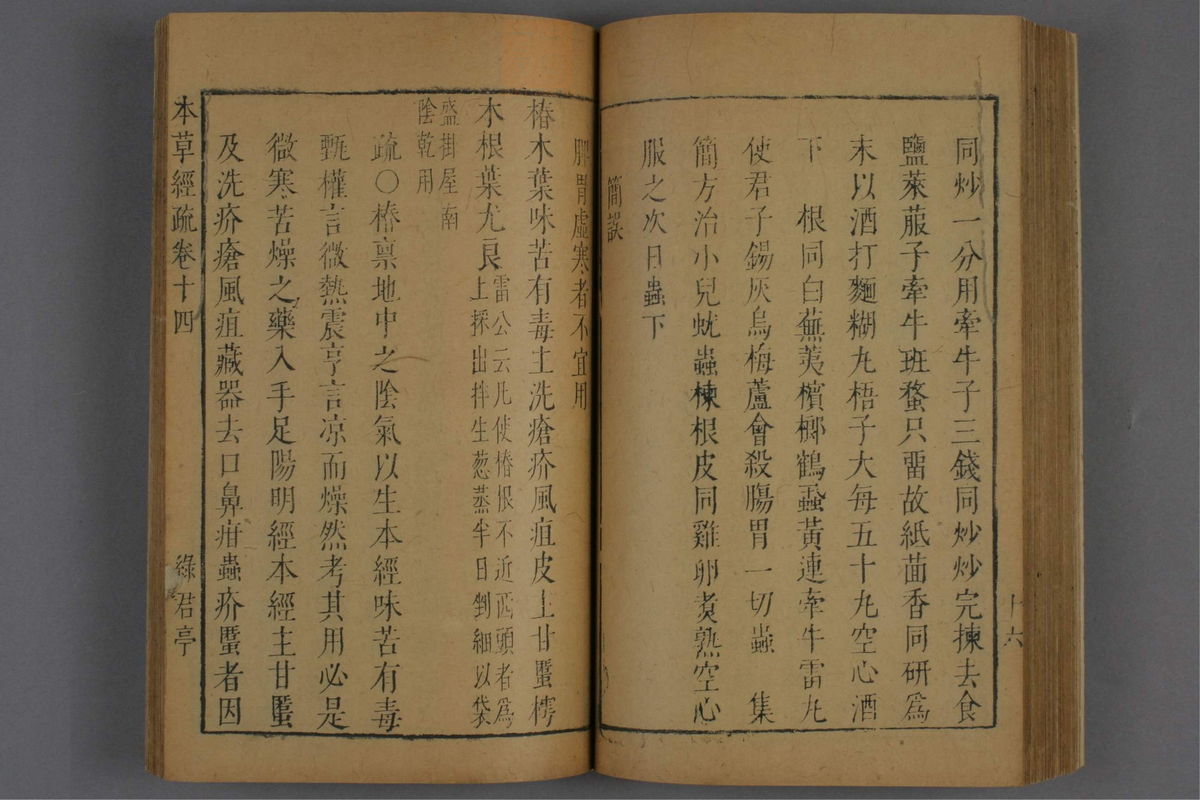 同炒一分用牽牛子三錢同炒炒完揀去食
鹽萊菔子牽牛班蝥只留故紙茴香同研爲
末以酒打麵糊丸梧子大每五十丸空心酒
下　根同白蕪荑檳榔鶴蝨黃連牽牛雷丸
使君子錫灰烏梅蘆會殺腸胃一切蟲　集
簡方治小兒蚘蟲楝根皮同雞卵煮熟空心
服之次日蟲下
簡誤
脾胃虛寒者不宜用
十六
椿木葉味苦有毒主洗瘡疥風疽皮主甘䘌樗
木根葉尤良
雷公云凡使椿根不近西頭者爲
上採出拌生葱蒸半日剉細以袋
盛掛屋南
陰乾用
疏〇椿禀地中之陰氣以生本經味苦有毒
甄權言微熱震亨言凉而燥然考其用必是
微寒苦燥之藥入手足陽明經本經主甘䘌
及洗疥瘡風疽藏器去口鼻疳蟲疥䘌者因
本草經疏卷十四
綠君亭